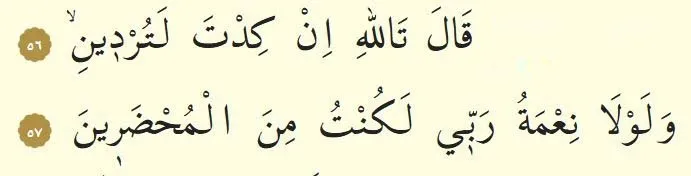 قَالَ تَاللّٰهِ اِنْ كِدْتَ لَتُرْد۪ينِۙ ٥٦
وَلَوْلَا نِعْمَةُ رَبّ۪ي لَكُنْتُ مِنَ الْمُحْضَر۪ينَ ٥٧